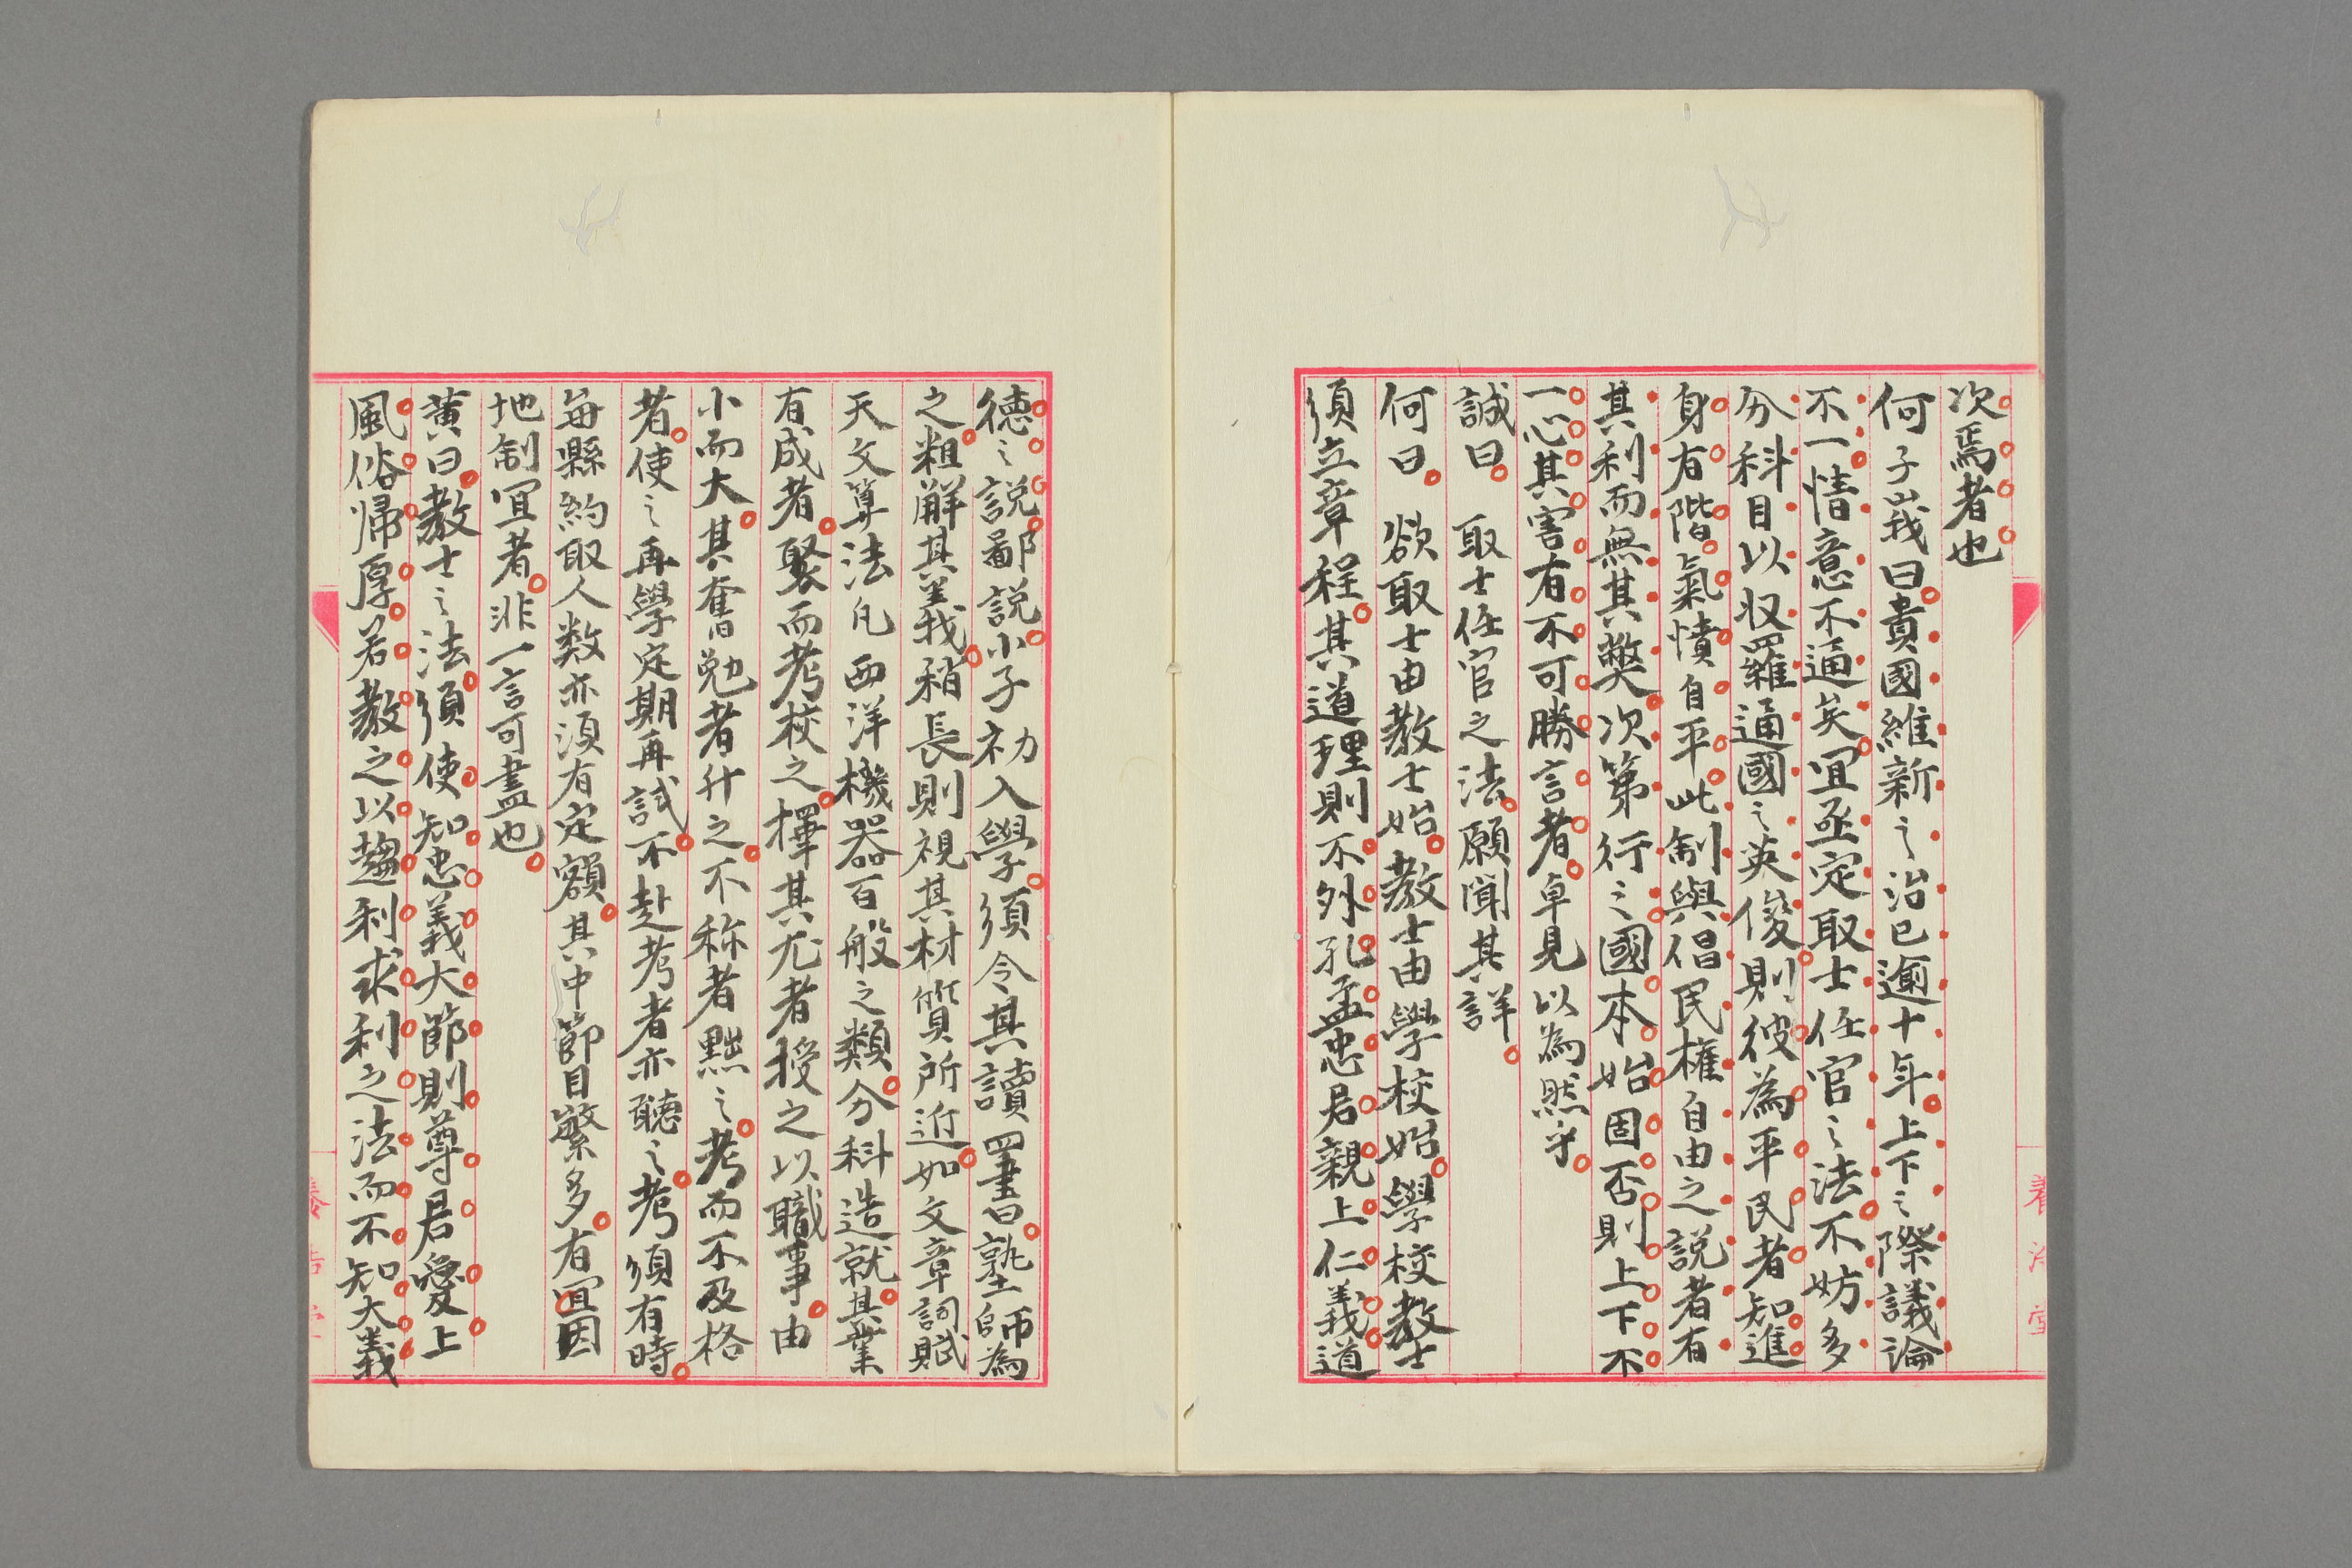 次焉者也
何子峩曰貴國維新之治已逾十年上下之際議論
不一情意不通矣宜亟定取士任官之法不妨多
分科目以收羅通國之英俊則彼為平民者知進
身有階氣憤自平此制與倡民權自由之説者有
其利而無其弊次第行之國本始固否則上下不
一心其害有不可勝言者卓見以為然乎
誠曰　取士任官之法願聞其詳
何曰　欲取士由教士始教士由學校始學校教士
須立章程其道理則不外孔孟忠君親上仁義道
徳之説鄙説小子初入學須令其讀四書塾師為
之粗解其義稍長則視其材質所近如文章詞賦
天文算法凡西洋機器百般之類分科造就其業
有成者聚而考校之擇其尤者授之以職事由
小而大其奮勉者升之不称者黜之考而不及格
者使之再學定期再試不赴考者亦聽之考須有時
每縣約取人数亦須有定額其中節目繁多有宜因
地制宜者非一言可盡也
黄曰教士之法須使知忠義大節則尊君愛上
風俗帰厚若教之以趨利求利之法而不知大義